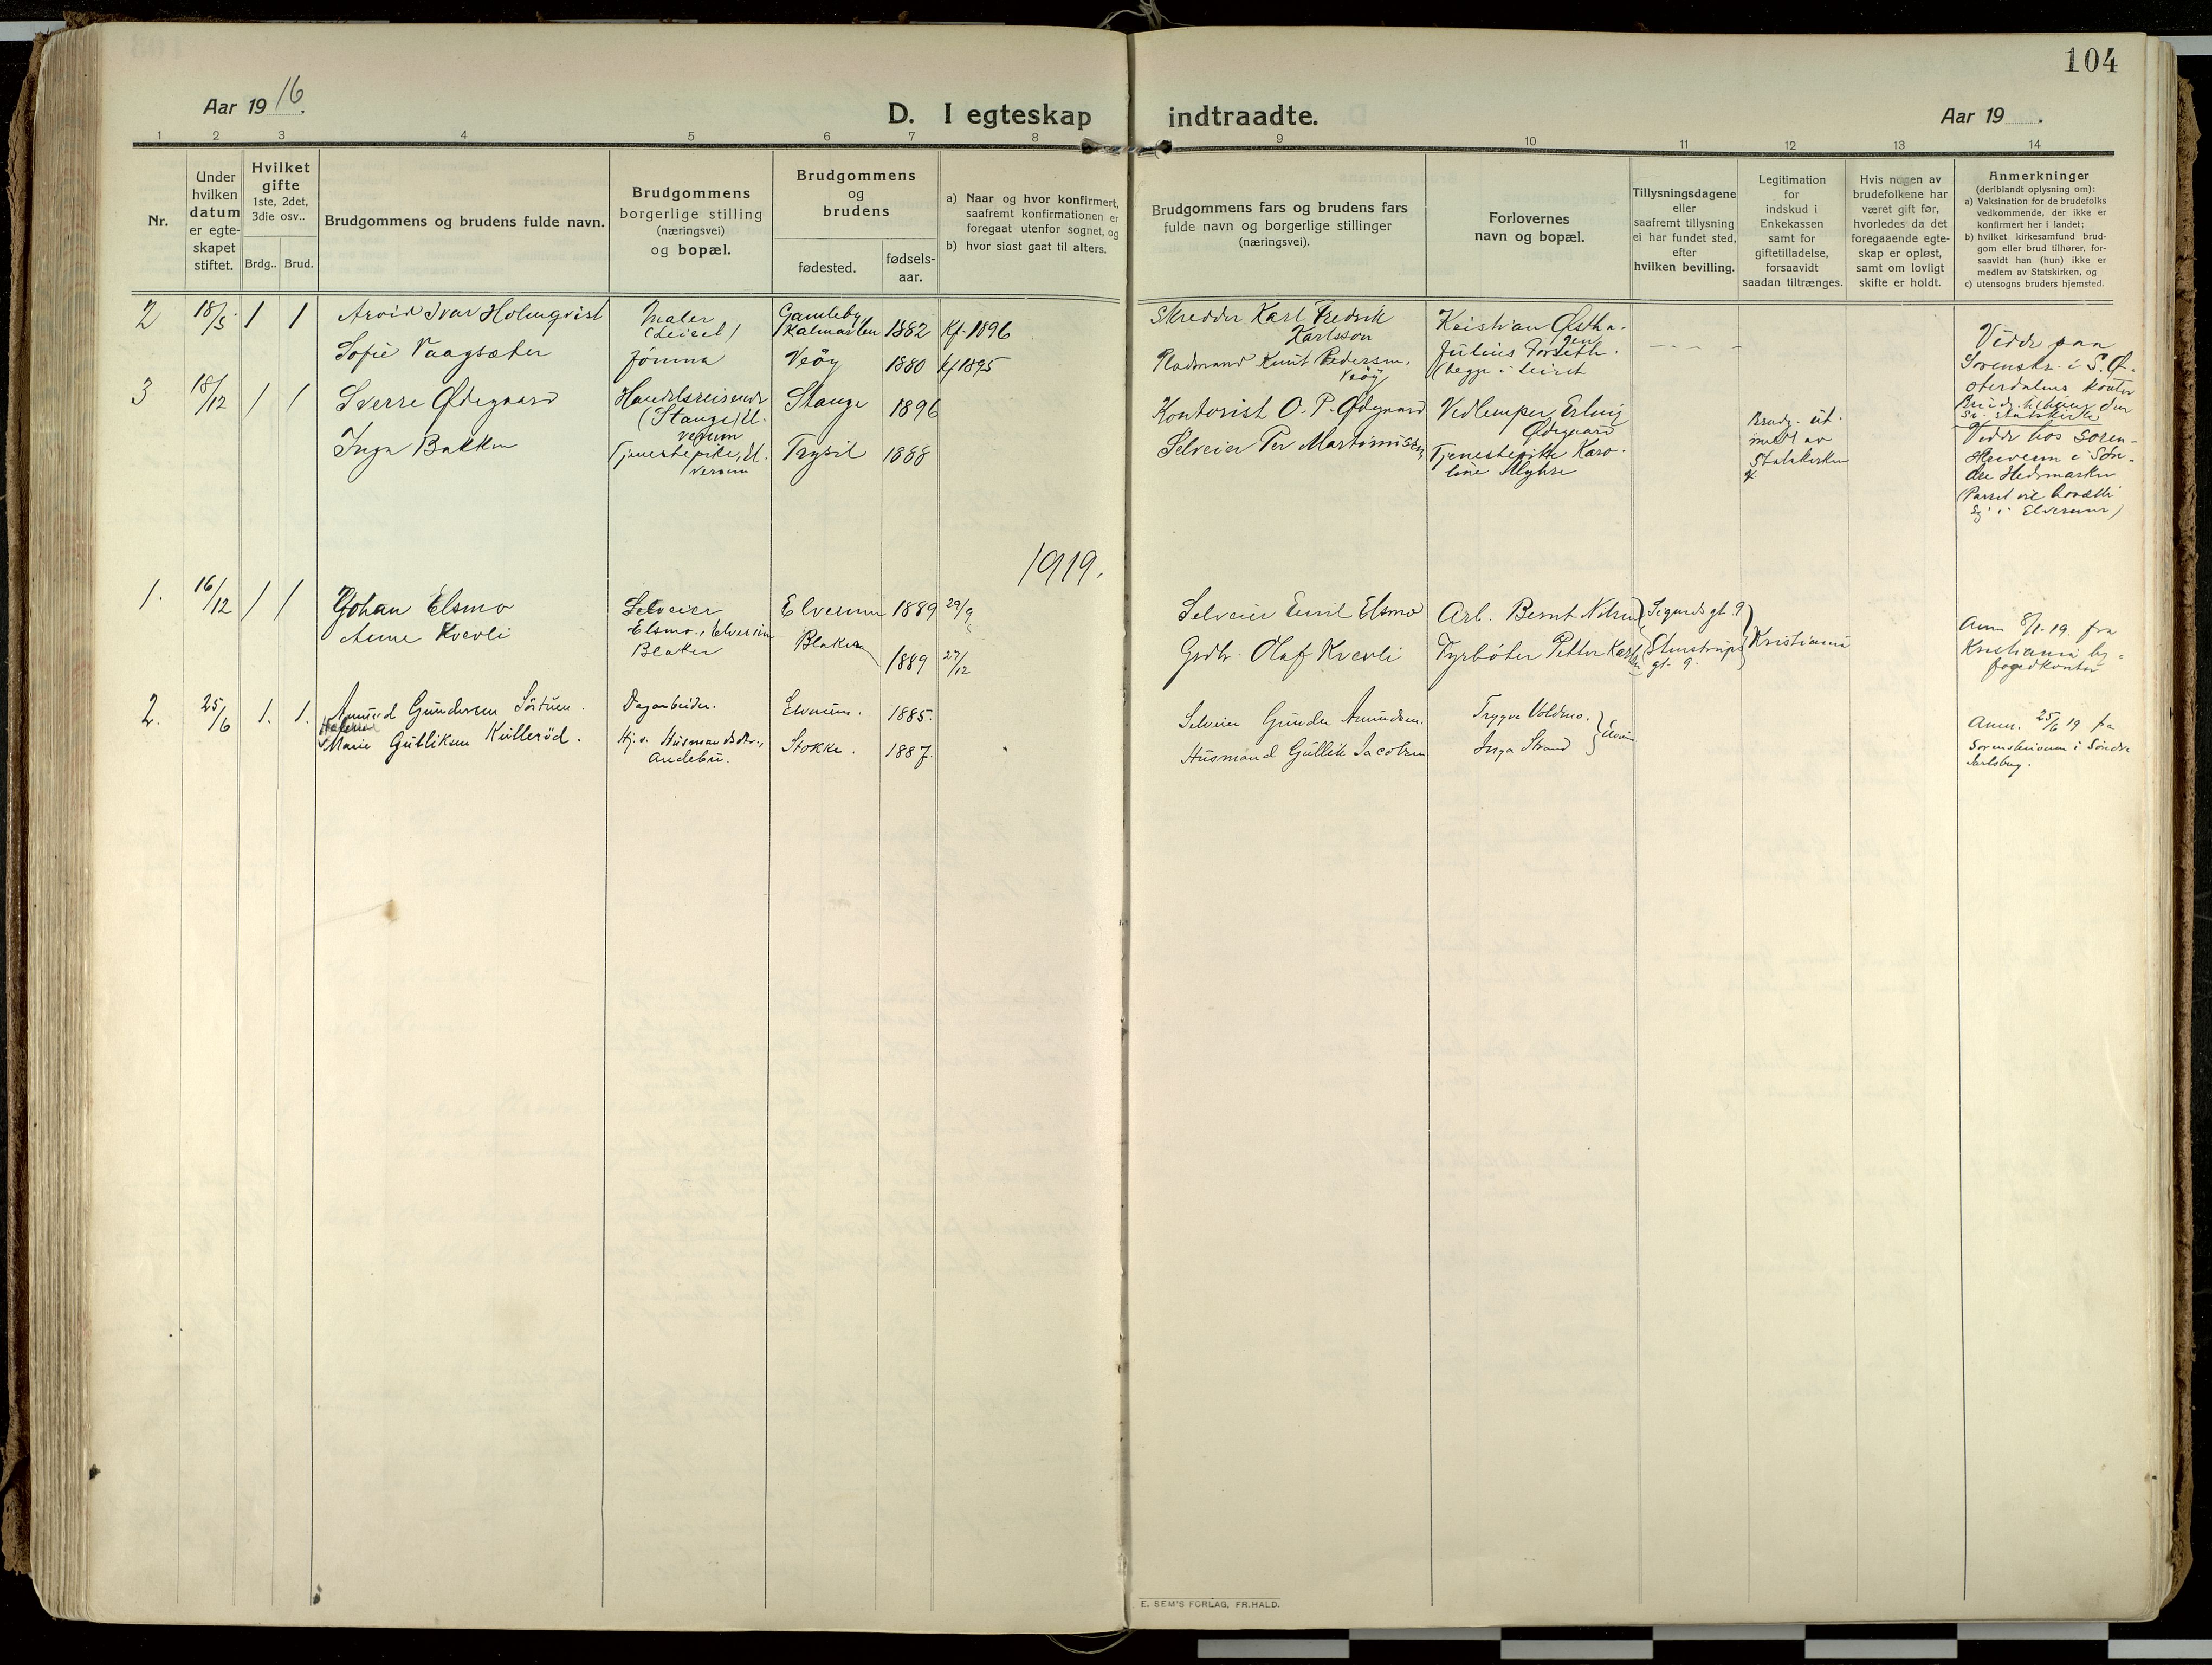 104
Aar 19 16.
D. I egteskap indtraadte.
Aar 19 .
1 2 3 4 5 6 7 8 9 10 11 12 13 14
Nr.
Under
hvilken
datum
er egte-
skapet
stiftet.
Hvilket
gifte
1ste, 2det,
3die osv..
Brdg.. Brud.
Brudgommens og brudens fulde navn.
Brudgommens
borgerlige stilling
(næringsvei)
og bopæl.
Brudgommens
og
brudens
fødested.
fødsels-
aar.
a) Naar og hvor konfirmert,
saafremt konfirmationen er
foregaat utenfor sognet, og
b) hvor sidst gaat til alters.
Brudgommens fars og brudens fars
fulde navn og borgerlige stillinger
(næringsvei).
Forlovernes
navn og bopæl.
Tillysningsdagene
eller
saafremt tillysning
ei har fundet sted,
efter
hvilken bevilling.
Legitimation
for
indskud i
Enkekassen
samt for
giftetilladelse,
forsaavidt
saadan tiltrænges.
Hvis nogen av
brudefolkene har
været gift før,
hvorledes da det
foregaaende egte-
skap er opløst,
samt om lovligt
skifte er holdt.
Anmerkninger
(deriblandt oplysning om):
a) Vaksination for de brudefolks
vedkommende, der ikke er
konfirmert her i landet;
b) hvilket kirkesamfund brud-
gom eller brud tilhører, for-
saavidt han (hun) ikke er
medlem av Statskirken, og
c) utensogns bruders hjemsted.
2 18/5 1 1 Arvid Ivar Holmqvist
Maler
(Leiret)
Gamleby
Kalmarlen 1882 Kf. 1896
Skredder Karl Fredrik
Karlsson
Kristian Østha-
gen
Sofie Vaagsæter
Jomna Veöy 1880 kf 1895
Pladsmand Knut Pedersen,
Veöy
Julius Forseth.
(begge i Leiret
Viedde paa
Sorenskr. i S. Ø-
sterdalens kontor
Brudg. tilhører den
sv. statskirke
3 18/12 1 1 Sverre Ødegaard
Handelsreisende
(Stange) El-
verum
Stange 1896
Kontorist O. P. Ødegaard
Vedlemper Erling
Ødegaard
Inga Bakken
Tjenestepike, El-
verum
Trysil 1888
Selveier Per Martinussen
Tjenestepike Karo-
line Myhre
Brudg. ut-
meldt av
Statskirken
Viedde hos Soren-
skriveren i Søn-
dre Hedemarken
(Parret vil bosætte
sig i Elverum)
1919.
1. 16/12 1 1 Johan Elsmo
Selveier
Elsmo, Elverum
Elverum 1889 29/9
Selveier Emil Elsmo
Arb. Bernt Nilsen
Sigurds gt. 9
Anne Kverli
Blaker
Blaker 1889 27/12
Grdbr. Olaf Kverli
Fyrbøter Petter
Stenstrups
gt. 9.
Kristiania
Anm 8/1-19. fra
Kristiania by-
fogedkontor
2. 25/6 1. 1. Amund Gundersen Sörtuen.
Dagarbeider.
Elverum. 1885.
Selveier Gunder Amundsen.
Trygve Voldmo.
Marie Gulliksen Kvilleröd.
Hj.v. Husmandsdtr.,
Andebu.
Stokke. 1887.
Husmand Gullik Jacobsen
Inga Strand
Elverum.
Anm. 25/6 19 fra
Sorenskriveren i Søndre
Jarlsberg.
E. SEM'S FORLAG, FR.HALD.